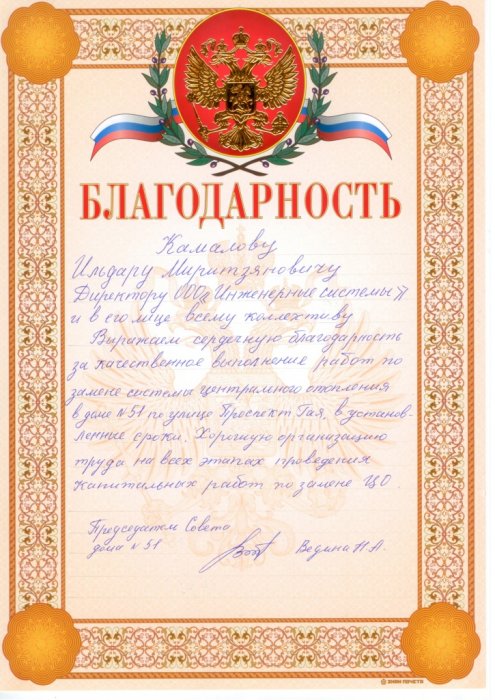 БЛАГОДАРНОСТЬ
Камалову
Ильдару Миритзяновичу
Директору ООО «Инженерные системы»
и в его лице всему коллективу
Выражаем сердечную благодарность
за качественное выполнение работ по
замене системы центрального отопления
в доме №51 по улице Проспект Гая, в установ-
ленные сроки. Хорошую организацию
труда на всех этапах проведения
капитальных работ по замене ЦО.
Председатель Совета
дома №51 Ведина Н.А.
ЗНАК ПОЧЕТА